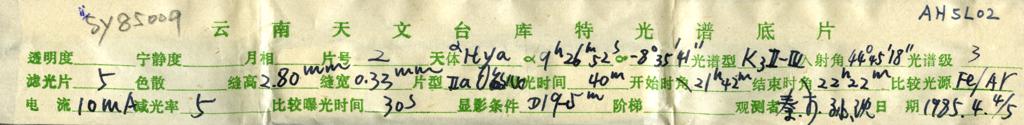 SY85009 云南天文台库特光谱底片 AH5L02
透明度 宁静度 月相 片号 2 天体 αHya α 9h26m52s δ -8°35'41" 光谱型 K3II-III 入射角 44°45'18" 光谱级 3
滤光片 5 色散 缝高 2.80mm 缝宽 0.33mm 片型 IIa 曝光时间 40m 开始时角 21h42m 结束时角 22h22m 比较光源 Fe/Ar
电流 10mA 减光率 5 比较曝光时间 30s 显影条件 D19-5m 阶梯 观测者 日期 1985.4.4/5